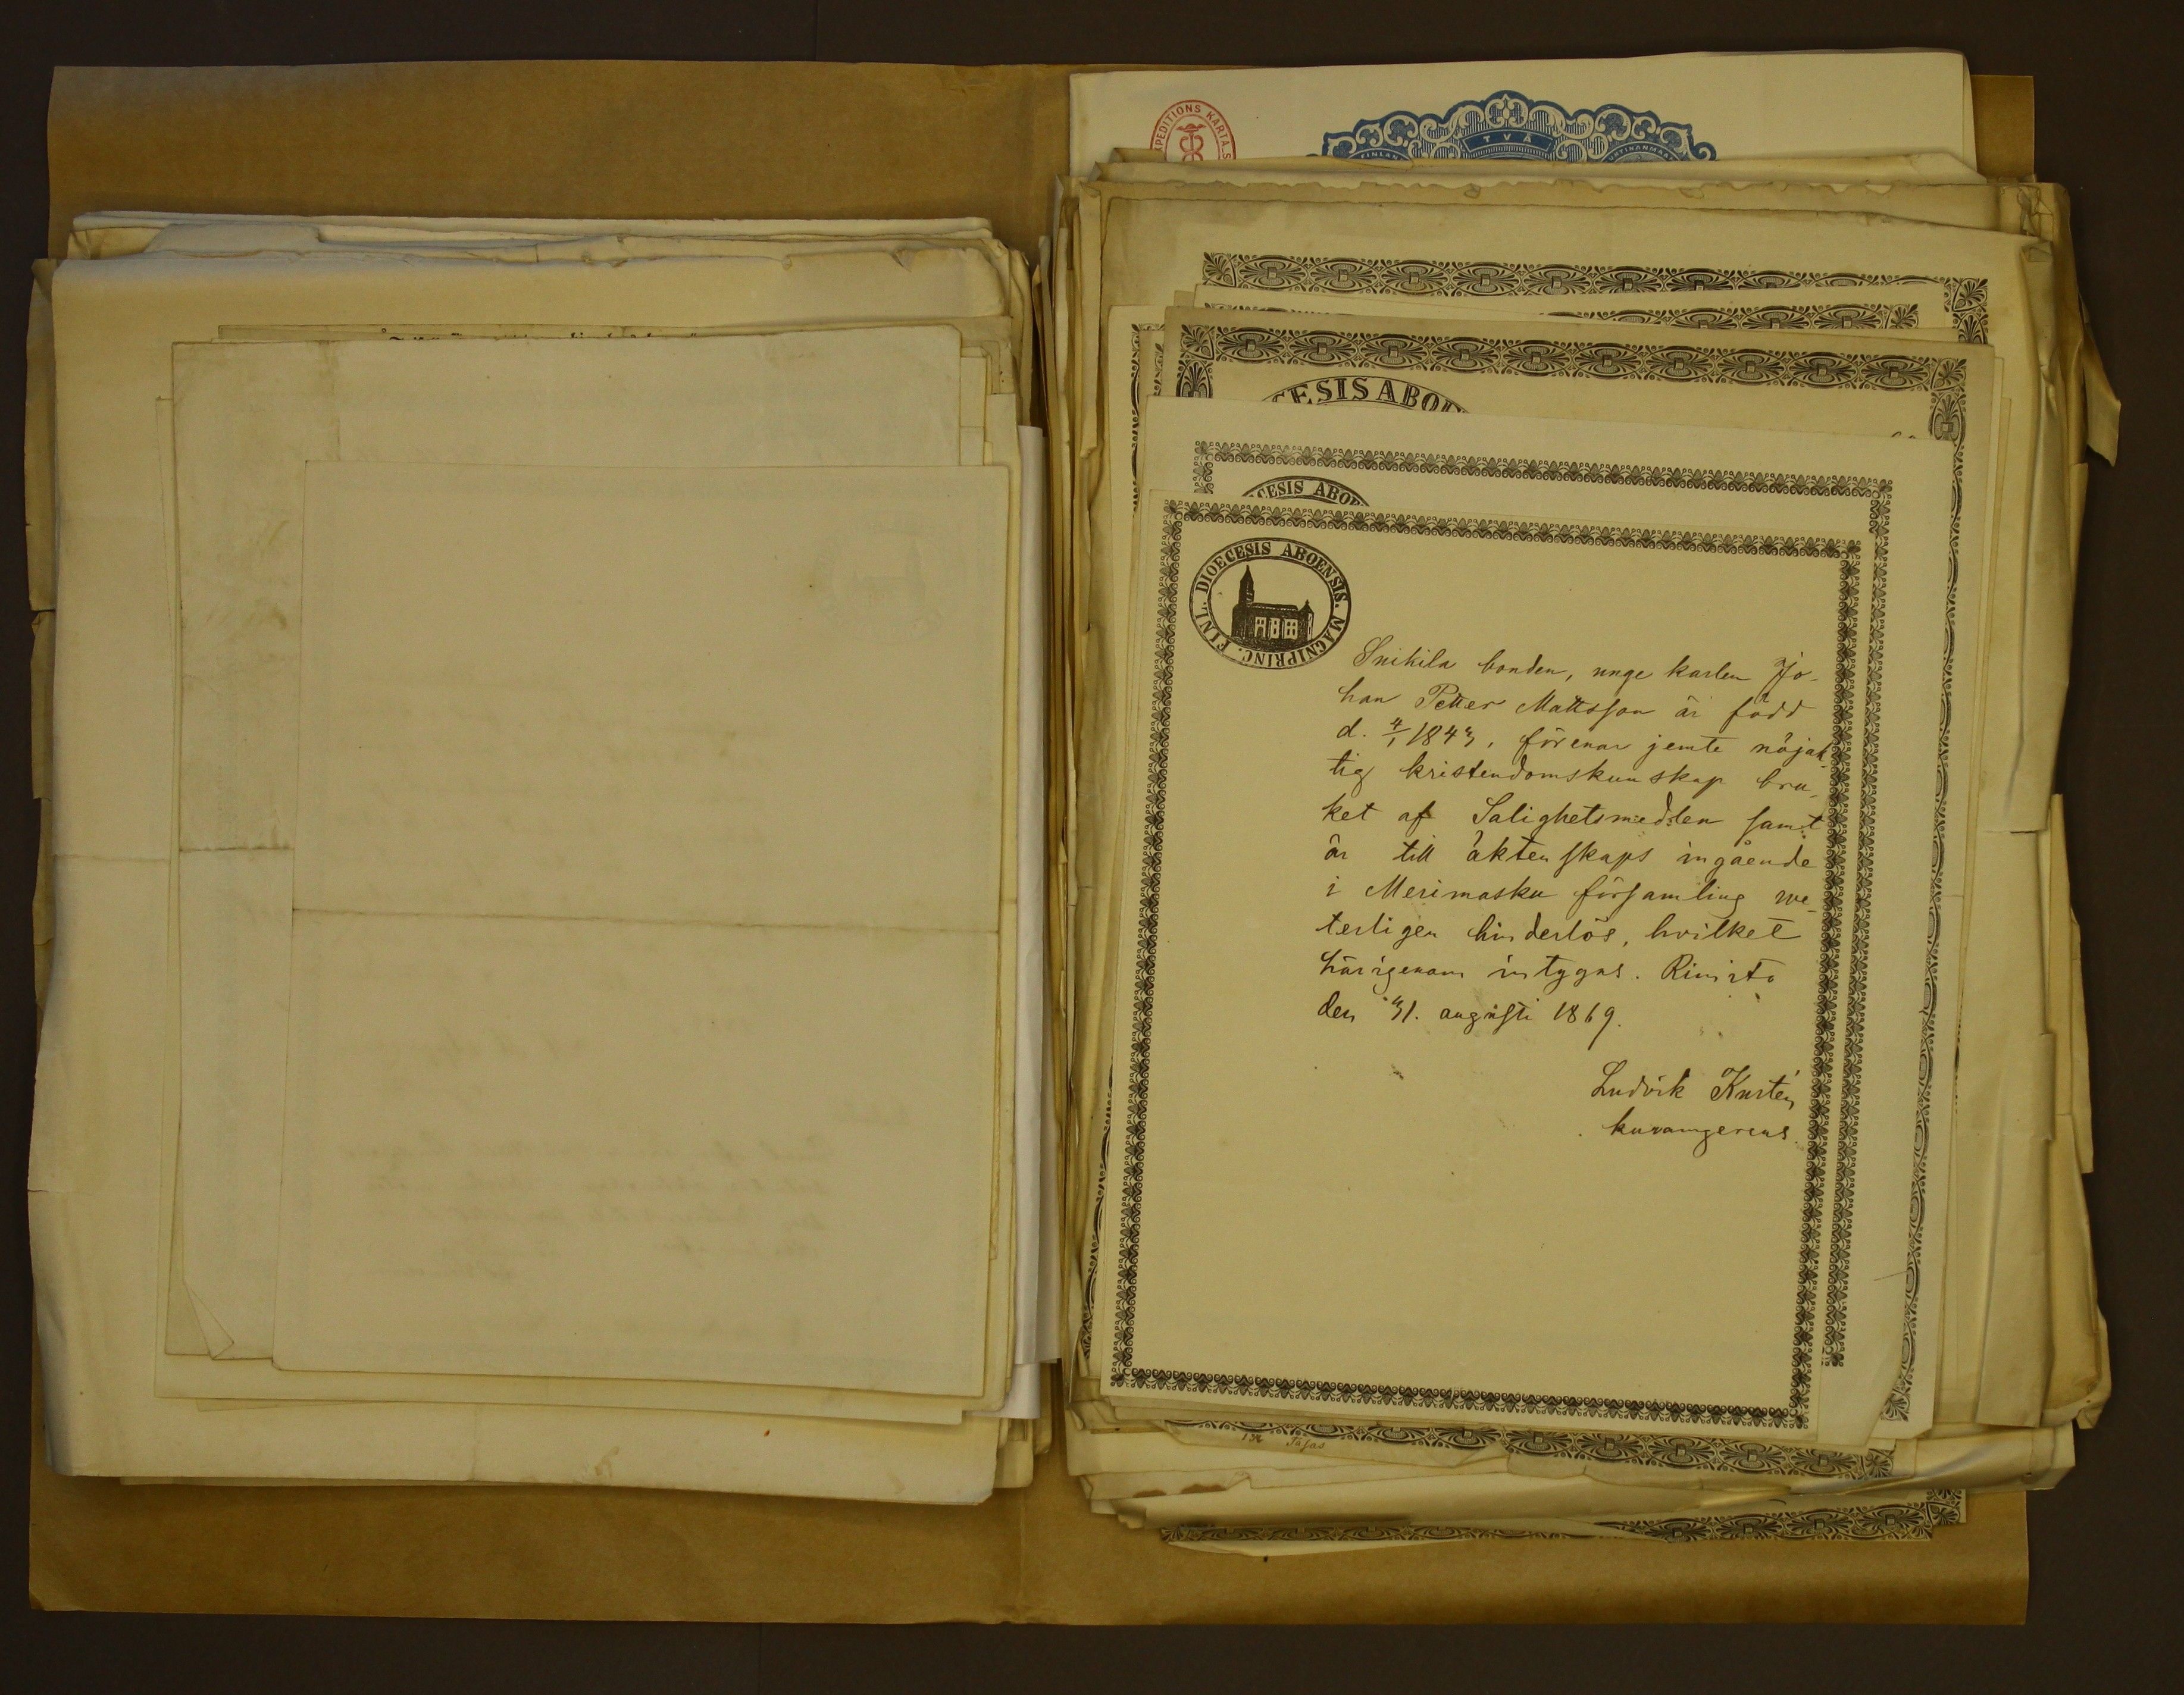 EXPEDITIONS KARTA.S
TVÅ
FINLAN
CESIS ABOE
CESIS ABOE
DIOECESIS ABOENSIS. MAGNIPRINC. FINL.
Snikila bonden, unge karlen Jo-
han Petter Mattsson är född
d. 4/1 1843, förenar jemte nöjak-
tig kristendomskunskap bru-
ket af Salighetsmedlen samt
är till äktenskaps ingående
i Merimasku församling we-
terligen hinderlös, hvilket
härigenom intygas. Rimito
den 31. augusti 1869.
Ludvik Kustén
kuvamgerens.